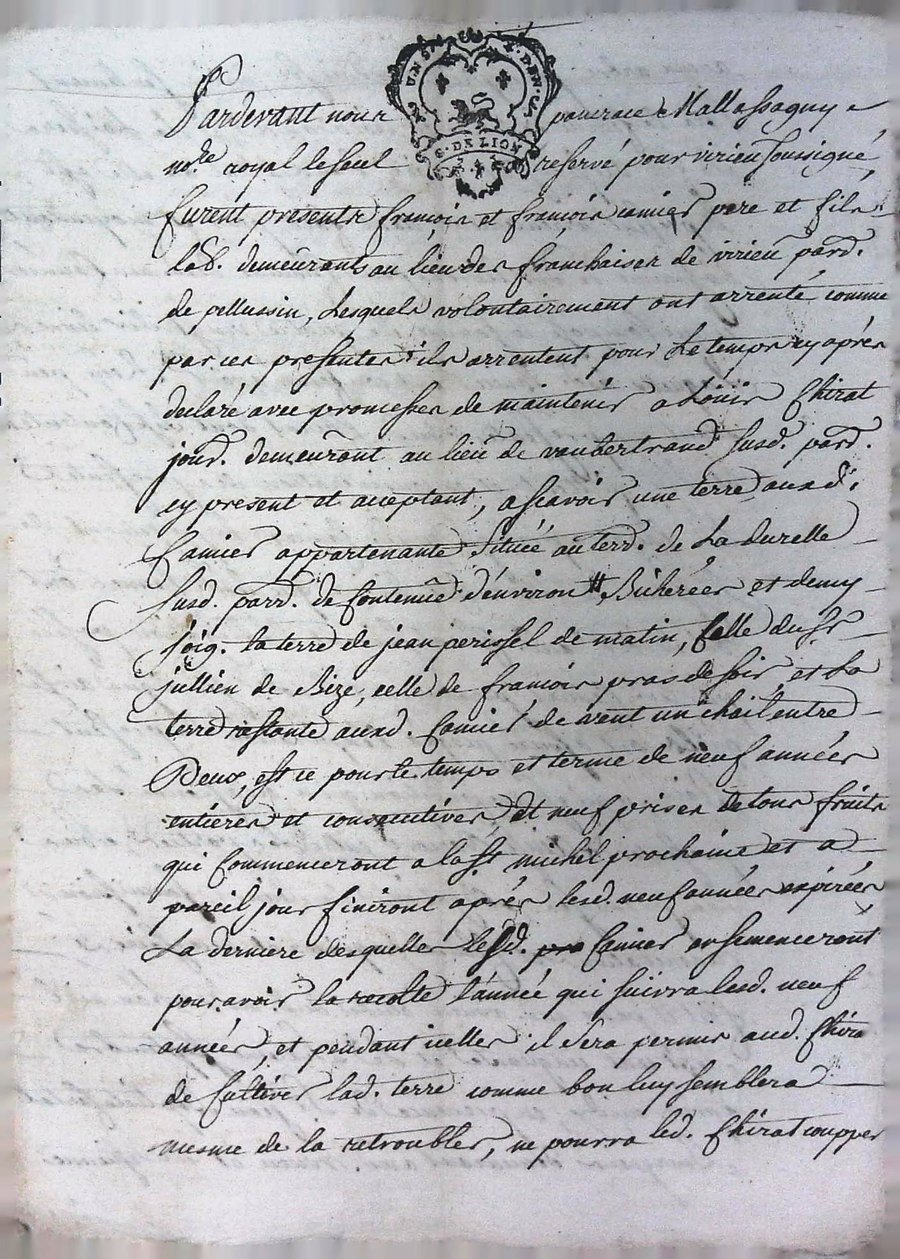 UN S. X. DEN. LA
G. DE LION
Pardevant nous pancrace Mallassagny
no.re royal le seul reservé pour virieu soussigné,
furent presents françois et françois camier pere et fils
lab. demeurants au lieu des franchises de virieu parr.
de pellussin, Lesquels volontairement ont arrenté comme
par ces presentes ils arrentent pour Le temps cy après
declaré avec promesses de maintenir a Louis Chirat
jour. demeurant au lieu de vaubertrand susd. parr.
cy present et acceptant, a scavoir une terre auxd.
Camier appartenante située au terr. de La durelle
susd. parr. de Contenue d'environ Bicherées et demy
joig. la terre de jean periossel de matin, Celle du Sr
jullien de Bize, celle de françois pras de soir, et La
terre restante auxd. Camier de vent un chail entre
Deux, est ce pour le temps et terme de neuf années
entieres et consecutives, Et neuf prises de tous fruits
qui Commenceront a la St. michel prochaine et a
pareil jour finiront après lesd. neuf années expirées
La derniere desquelles lesd. Camier ensemenceront
pour avoir la recolte l'année qui suivra lesd. neuf
années, et pendant icelles il sera permis aud. Chirat
de Cultiver lad. terre comme bon luy semblera
mesme de la retroubler, ne pourra led. Chirat coupper